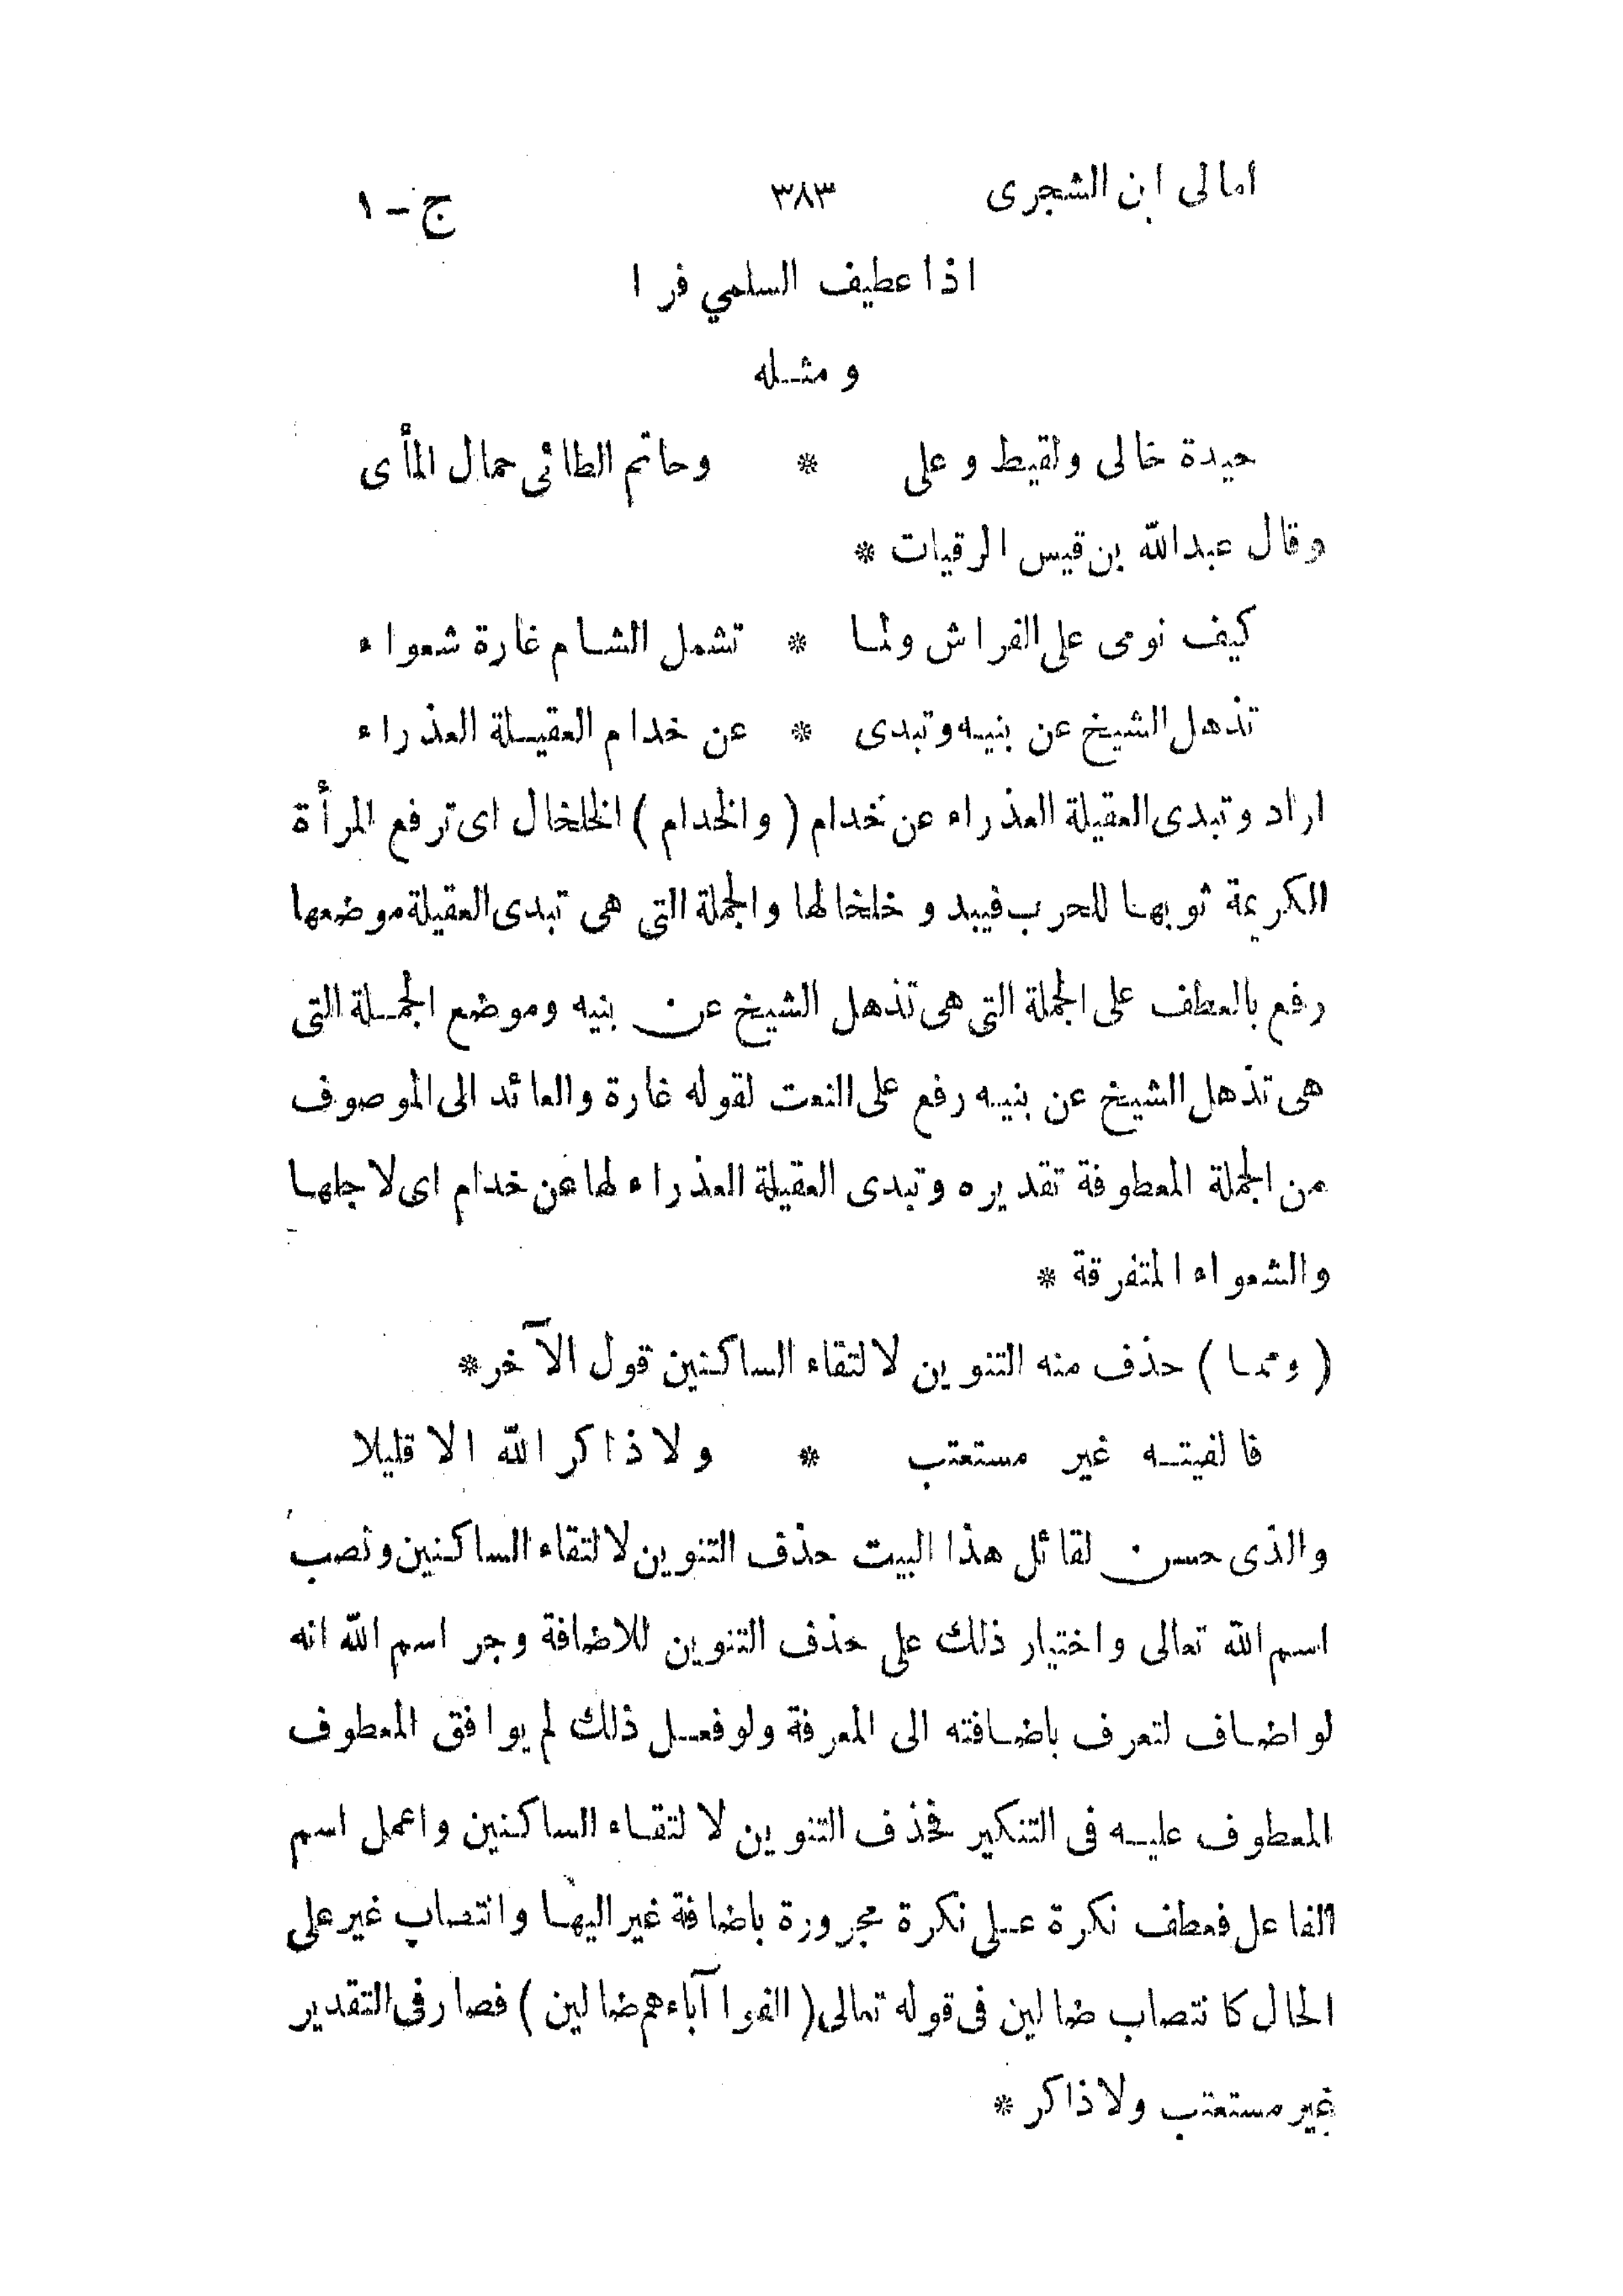 امالى ابن الشجرى ٣٨٣ ج - ١
اذا عطيف السلمي فرا
ومثله
حيدة خالى ولقيط وعلى * وحاتم الطائى حمال المأى
وقال عبدالله بن قيس الرقيات *
كيف نومى على الفراش ولما * تشمل الشام غارة شعواء
تذهل الشيخ عن بنيه وتبدى * عن خدام العقيلة العذراء
اراد وتبدى العقيلة العذراء عن خدام ( والخدام ) الخلخال اى ترفع المرأة
الكريمة ثوبها للحرب فيبدو خلخالها والجملة التى هى تبدى العقيلة موضعها
رفع بالعطف على الجملة التى هى تذهل الشيخ عن بنيه وموضع الجملة التى
هى تذهل الشيخ عن بنيه رفع على النعت لقوله غارة والعائد الى الموصوف
من الجملة المعطوفة تقديره وتبدى العقيلة العذراء لها عن خدام اى لاجلها
والشعواء المتفرقة *
( ومما ) حذف منه التنوين لالتقاء الساكنين قول الآخر *
فالفيته غير مستعتب * ولا ذاكر الله الا قليلا
والذى حسن لقائل هذا البيت حذف التنوين لالتقاء الساكنين ونصب
اسم الله تعالى واختيار ذلك على حذف التنوين للاضافة وجر اسم الله انه
لو اضاف لتعرف باضافته الى المعرفة ولو فعل ذلك لم يوافق المعطوف
المعطوف عليه فى التنكير فحذف التنوين لالتقاء الساكنين واعمل اسم
الفاعل فعطف نكرة على نكرة مجرورة باضافة غير اليها وانتصاب غير على
الحال كانتصاب ضالين فى قوله تعالى ( الفوا آباءهم ضالين ) فصار فى التقدير
غير مستعتب ولا ذاكر *